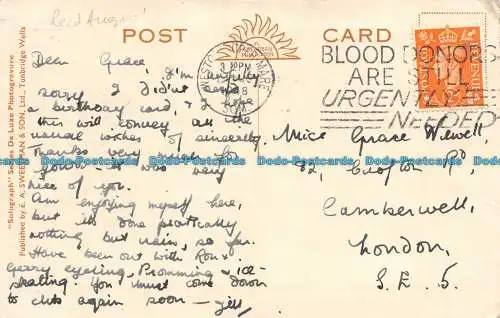 POST
CARD
BLOOD DONORS
ARE STILL
URGENTLY
NEEDED
"Autograph" Series De Luxe Photogravure
Published by E. A. SWEETMAN & SON, Ltd., Tunbridge Wells
Dear Grace,
I'm awfully
sorry I did'nt send
a birthday card, & I hope
this will convey all the
usual wishes of sincerity.
Thanks very much for
yours - it was very
nice of you.
Am enjoying myself here,
but it's done practically
nothing but rain, so far.
Have been out with Ron,
Gerry cycling, Promming & ice-
skating. You must come down
to clubs again soon -
Miss Grace Newell,
82, Crofton Rd,
Camberwell,
London,
S.E. 5.
Dodo-Postcards Dodo-Postcards Dodo-Postcards Dodo-Postcards Dodo-Postcards